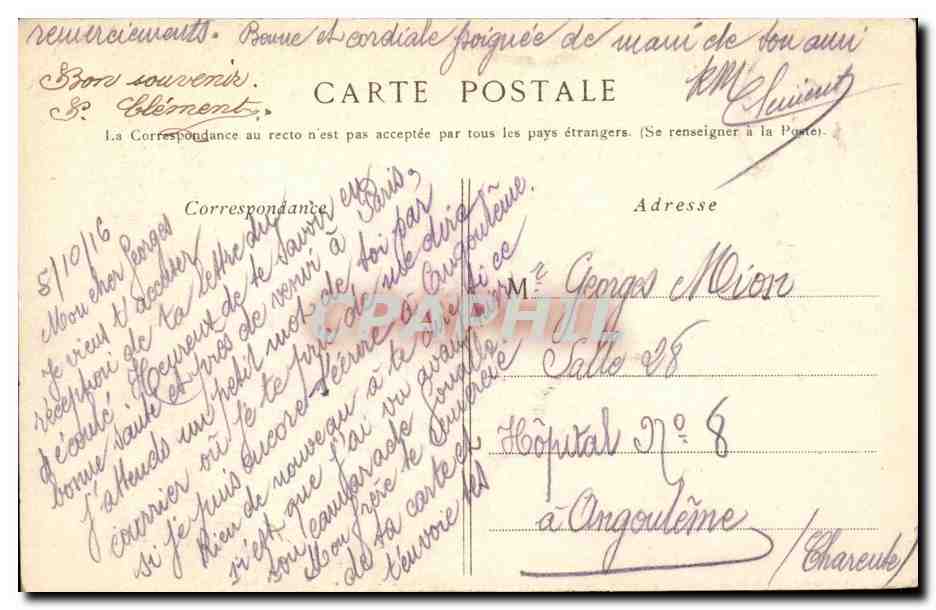 remerciements. Bonne et cordiale poignée de main de ton ami
Bon souvenir.
P. Clément.
CARTE POSTALE
RM Clément
La Correspondance au recto n'est pas acceptée par tous les pays étrangers. (Se renseigner à la Poste).
Correspondance
Adresse
5/10/16
Mon cher Georges
Je viens t'accuser
réception de ta lettre du
écoulé. Heureux de te savoir en
bonne santé et près de venir à Paris,
j'attends un petit mot de toi par
courrier où je te prie de me dire
si je puis encore t'écrire à Angoulême.
Rien de nouveau à te dire si ce
n'est que j'ai vu avant hier
ton camarade
Mon frère te remercie
de ta carte et
t'envoie ses
Mr. Georges Mion
Salle 28
Hôpital No. 8
à Angoulême
(Charente)
CPAPHIL